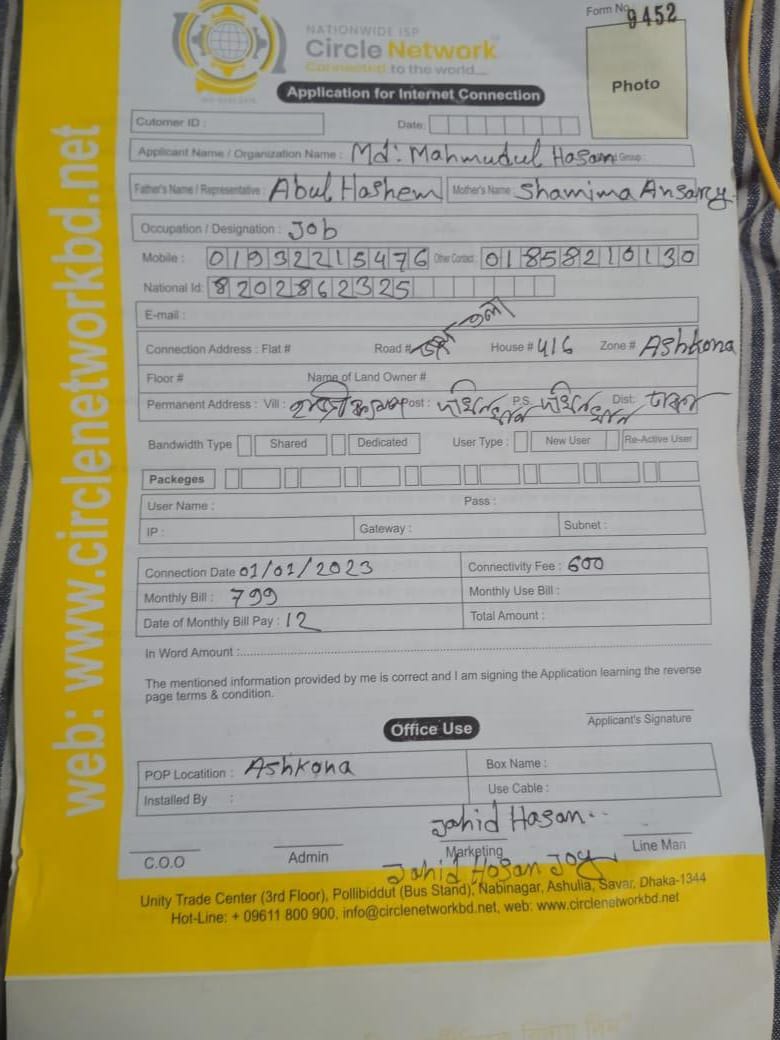 Form No. 9452
NATIONWIDE ISP
Circle Network
Connected to the world....
Photo
Application for Internet Connection
Cutomer ID :
Date:
Applicant Name / Organization Name : Md: Mahmudul Hasan Group :
Father's Name / Representative : Abul Hashem Mother's Name : Shamima Ansary
Occupation / Designation : Job
Mobile : 01932215476 Other Contact : 01858210130
National Id: 8202862325
E-mail :
Connection Address : Flat # Road # House # 416 Zone # Ashkona
Floor # Name of Land Owner #
Permanent Address : Vill : Post : P.S. Dist: ঢাকা
Bandwidth Type Shared Dedicated User Type : New User Re-Active User
Packeges
User Name : Pass :
IP : Gateway : Subnet :
Connection Date 01/01/2023 Connectivity Fee : 600
Monthly Bill : 799 Monthly Use Bill :
Date of Monthly Bill Pay : 12 Total Amount :
In Word Amount :
The mentioned information provided by me is correct and I am signing the Application learning the reverse
page terms & condition.
Applicant's Signature
Office Use
POP Locatition : Ashkona Box Name :
Installed By : Use Cable :
Jahid Hasan..
C.O.O Admin Marketing Line Man
Jahid Hasan Joy
Unity Trade Center (3rd Floor), Pollibiddut (Bus Stand), Nabinagar, Ashulia, Savar, Dhaka-1344
Hot-Line: + 09611 800 900, info@circlenetworkbd.net, web: www.circlenetworkbd.net
web: www.circlenetworkbd.net